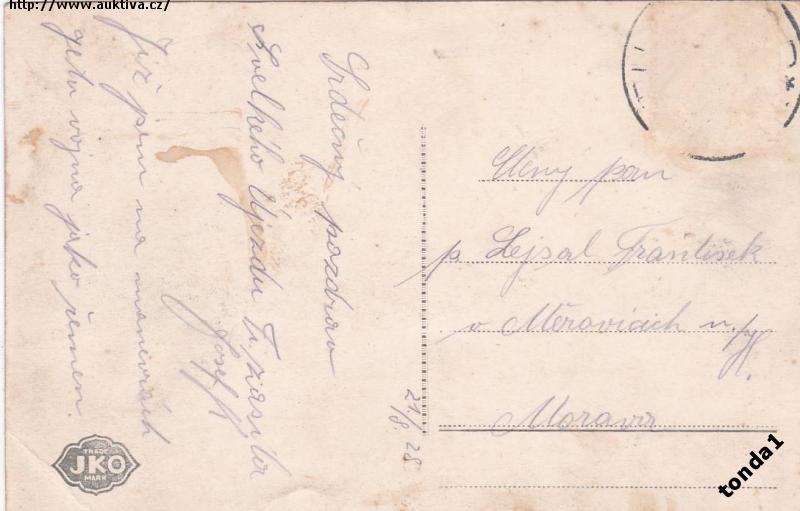 http://www.auktiva.cz/
Srdečný pozdrav
z velkého Újezdu Ti zasílá
Josef
Již jsem na manévrách
je tu vojna jako řemen.
21/8. 28
Ctěný pan
p. Lejsal František
v Měrovicích n./H.
Morava
TRADE
JKO
MARK
tonda1